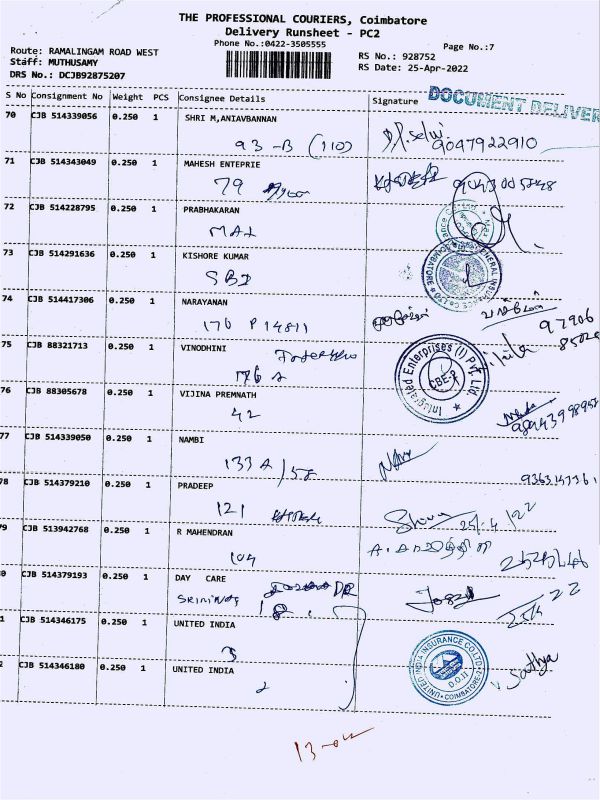 THE PROFESSIONAL COURIERS, Coimbatore
Delivery Runsheet - PC2
Phone No.:0422-3505555
Page No.:7
Route: RAMALINGAM ROAD WEST
Staff: MUTHUSAMY
DRS No.: DCJB92875207
RS No.: 928752
RS Date: 25-Apr-2022
S No Consignment No Weight PCS Consignee Details Signature
DOCUMENT DELIVER
70 CJB 514339056 0.250 1 SHRI M,ANIAVBANNAN
93-B (110) 9047922910
71 CJB 514343049 0.250 1 MAHESH ENTEPRIE
79
72 CJB 514228795 0.250 1 PRABHAKARAN
MAL
73 CJB 514291636 0.250 1 KISHORE KUMAR
SBI
74 CJB 514417306 0.250 1 NARAYANAN
176 P 14811
97906
75 CJB 88321713 0.250 1 VINODHINI
176 A
Integrated Enterprises (I) Pvt. Ltd.
CBE-2
76 CJB 88305678 0.250 1 VIJINA PREMNATH
42
77 CJB 514339050 0.250 1 NAMBI
133 A/58
78 CJB 514379210 0.250 1 PRADEEP
121
25/-4/22
79 CJB 513942768 0.250 1 R MAHENDRAN
104
0 CJB 514379193 0.250 1 DAY CARE
SRINIVAS 18.
25/4 22
1 CJB 514346175 0.250 1 UNITED INDIA
3
2 CJB 514346180 0.250 1 UNITED INDIA
2
UNITED INDIA INSURANCE CO.LTD
D.O.II
COIMBATORE-2
Sathya